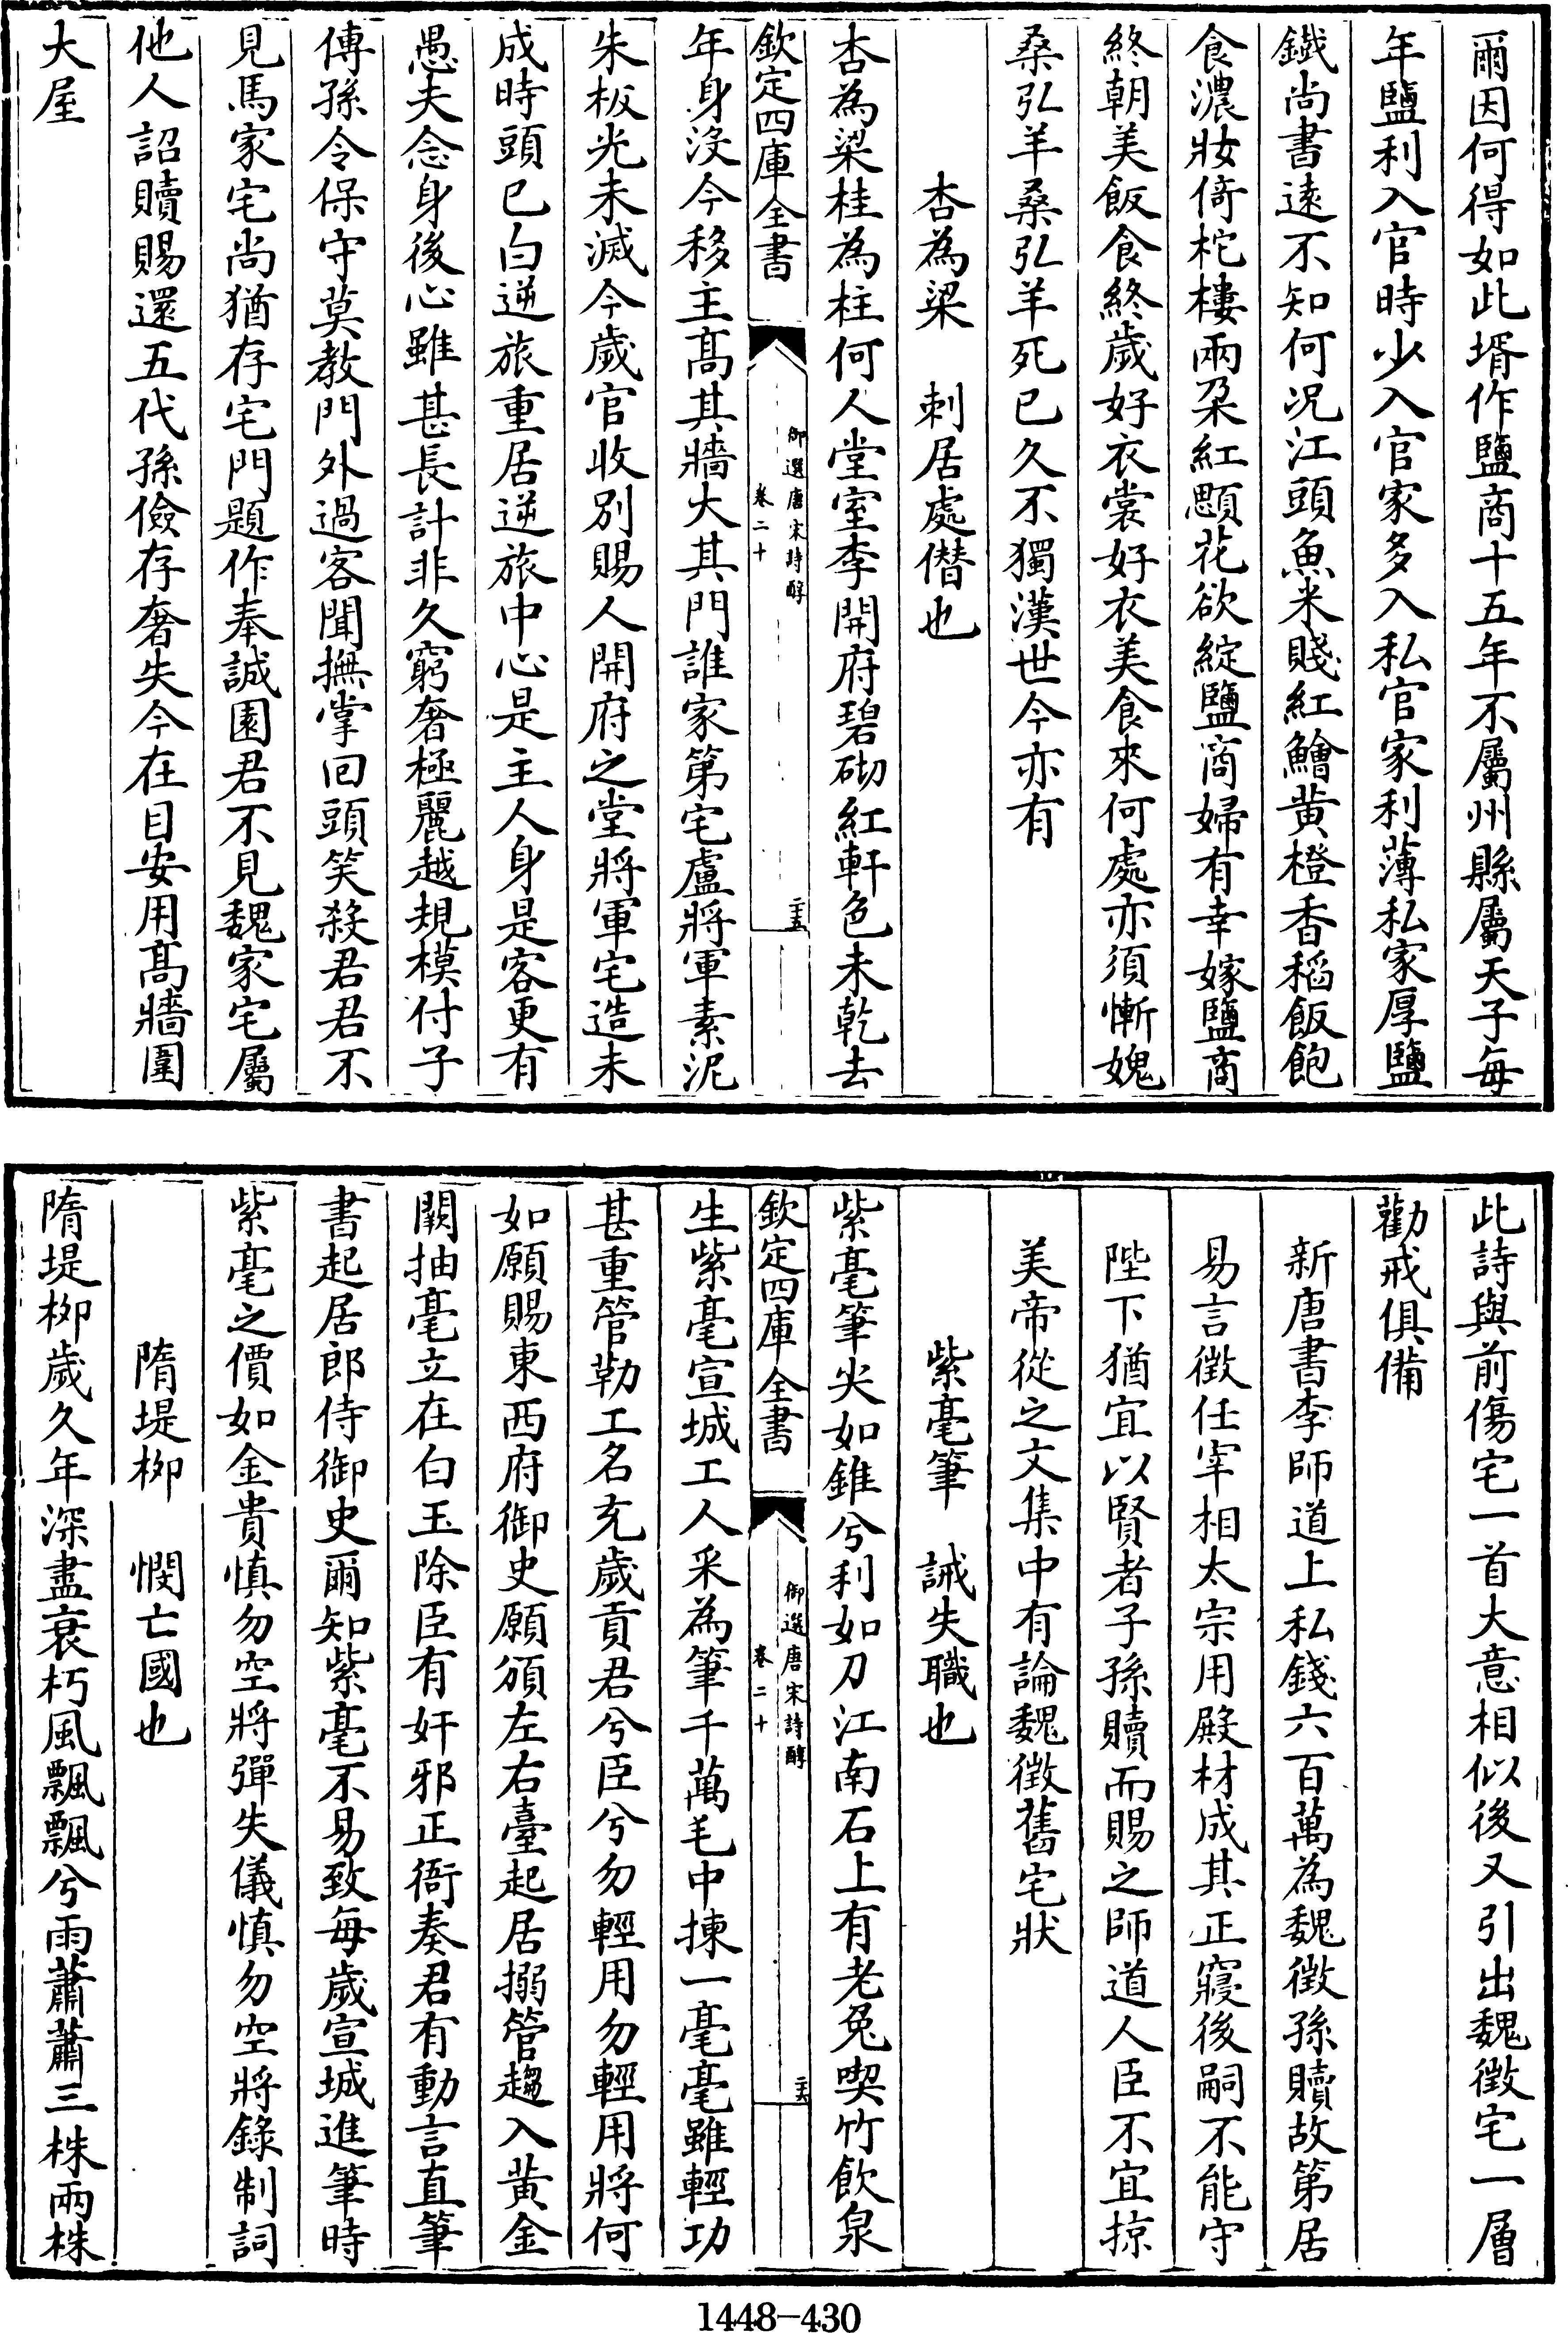 爾因何得如此壻作鹽商十五年不屬州縣屬天子每
年鹽利入官時少入官家多入私官家利薄私家厚鹽
鐵尚書遠不知何況江頭魚米賤紅鱠黄橙香稻飯飽
食濃妝倚柁樓兩朶紅顋花欲綻鹽商婦有幸嫁鹽商
終朝美飯食終歲好衣裳好衣美食來何處亦須慚媿
桑弘羊桑弘羊死已久不獨漢世今亦有
杏為梁　刺居處僭也
杏為梁桂為柱何人堂室李開府碧砌紅軒色未乾去
欽定四庫全書
御選唐宋詩醇
卷二十
二五
年身沒今移主髙其牆大其門誰家第宅盧將軍素泥
朱板光未滅今歲官收别賜人開府之堂將軍宅造未
成時頭已白逆旅重居逆旅中心是主人身是客更有
愚夫念身後心雖甚長計非久窮奢極麗越規模付子
傳孫令保守莫教門外過客聞撫掌回頭笑殺君君不
見馬家宅尚猶存宅門題作奉誠園君不見魏家宅屬
他人詔贖賜還五代孫儉存奢失今在目安用髙牆圍
大屋
此詩與前傷宅一首大意相似後又引出魏徵宅一層
勸戒俱備
新唐書李師道上私錢六百萬為魏徵孫贖故第居
易言徵任宰相太宗用殿材成其正寢後嗣不能守
陛下猶宜以賢者子孫贖而賜之師道人臣不宜掠
美帝從之文集中有論魏徵舊宅狀
紫毫筆　誡失職也
紫毫筆尖如錐兮利如刀江南石上有老兔喫竹飲泉
欽定四庫全書
御選唐宋詩醇
卷二十
二六
生紫毫宣城工人采為筆千萬毛中揀一毫毫雖輕功
甚重管勒工名充歲貢君兮臣兮勿輕用勿輕用將何
如願賜東西府御史願頒左右臺起居搦管趨入黄金
闕抽毫立在白玉除臣有奸邪正衙奏君有動言直筆
書起居郎侍御史爾知紫毫不易致每歲宣城進筆時
紫毫之價如金貴慎勿空將彈失儀慎勿空將錄制詞
隋堤柳　憫亡國也
隋堤柳歲久年深盡衰朽風飄飄兮雨蕭蕭三株兩株
1448-430